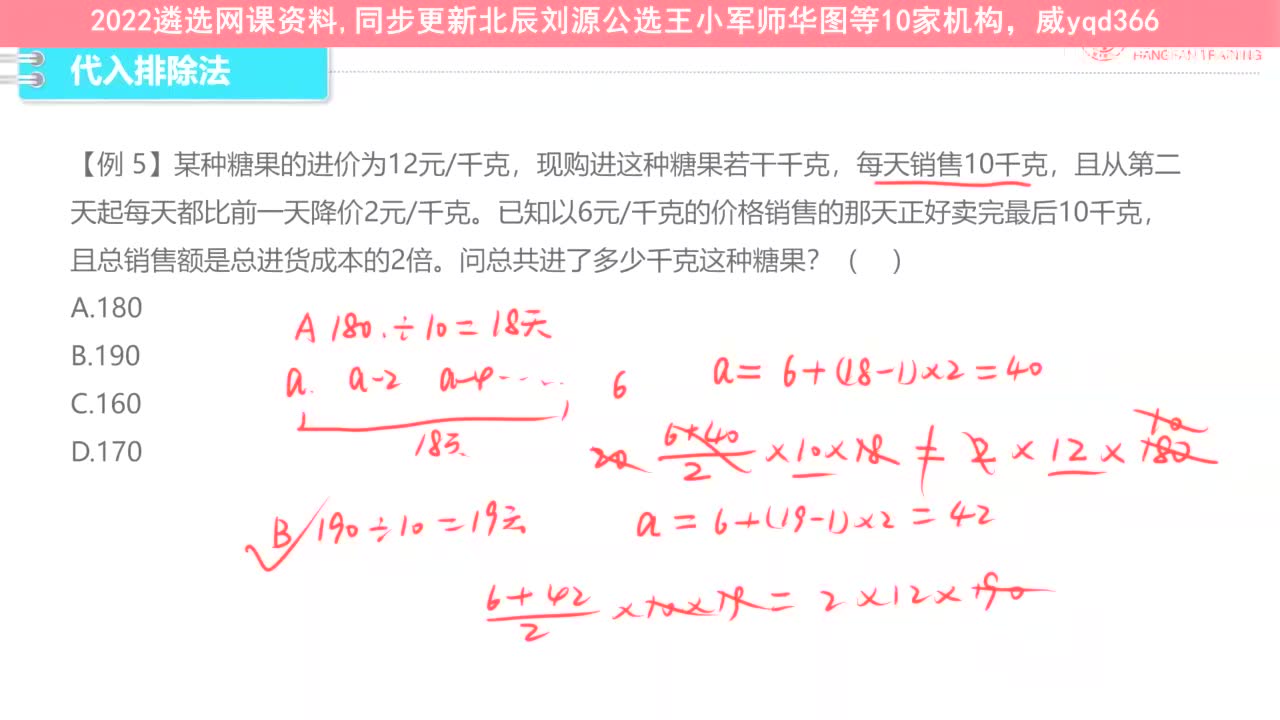 2022遴选网课资料,同步更新北辰刘源公选王小军师华图等10家机构，威yqd366
代入排除法
HANGFAN TRAINING
【例 5】某种糖果的进价为12元/千克，现购进这种糖果若干千克，每天销售10千克，且从第二
天起每天都比前一天降价2元/千克。已知以6元/千克的价格销售的那天正好卖完最后10千克，
且总销售额是总进货成本的2倍。问总共进了多少千克这种糖果？（ ）
A.180
B.190
C.160
D.170
A 180.÷10=18天
a. a-2 a-4····· 6
18天
a= 6+(18-1)×2=40
20 6+40/2 ×10×18 ≠ 2×12×180
10
B 190÷10=19天
a=6+(19-1)×2=42
6+42/2 ×10×19=2×12×190